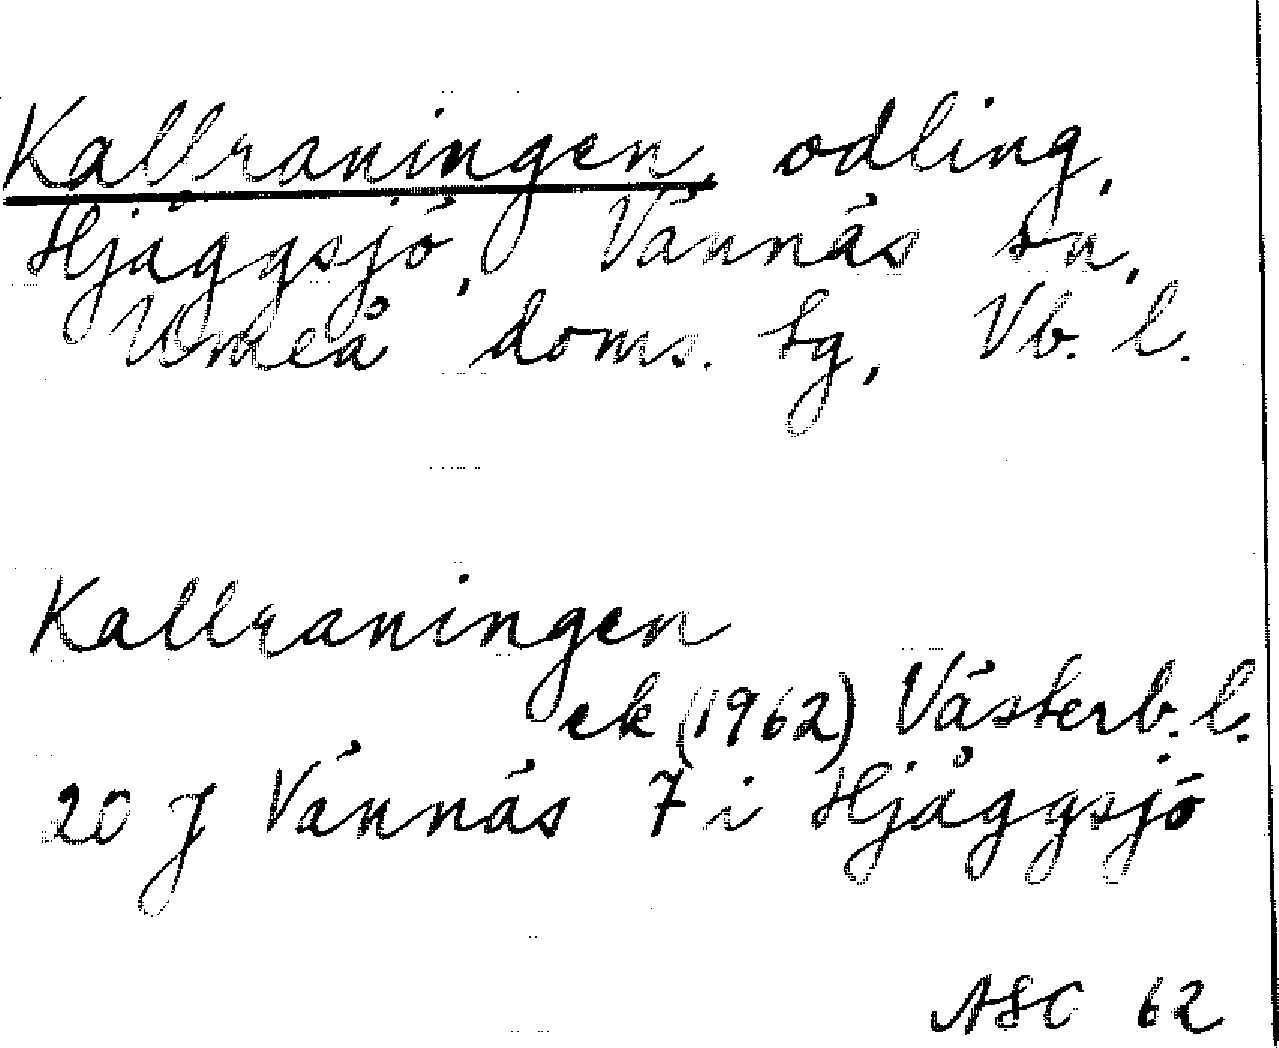 Kallraningen, odling,
Hjåggsjö, Vännäs sn,
Umeå doms. tg, Vb. l.
Kallraningen
ek (1962) Västerb. l.
20 J Vännäs 7 i Hjåggsjö
ASC 62